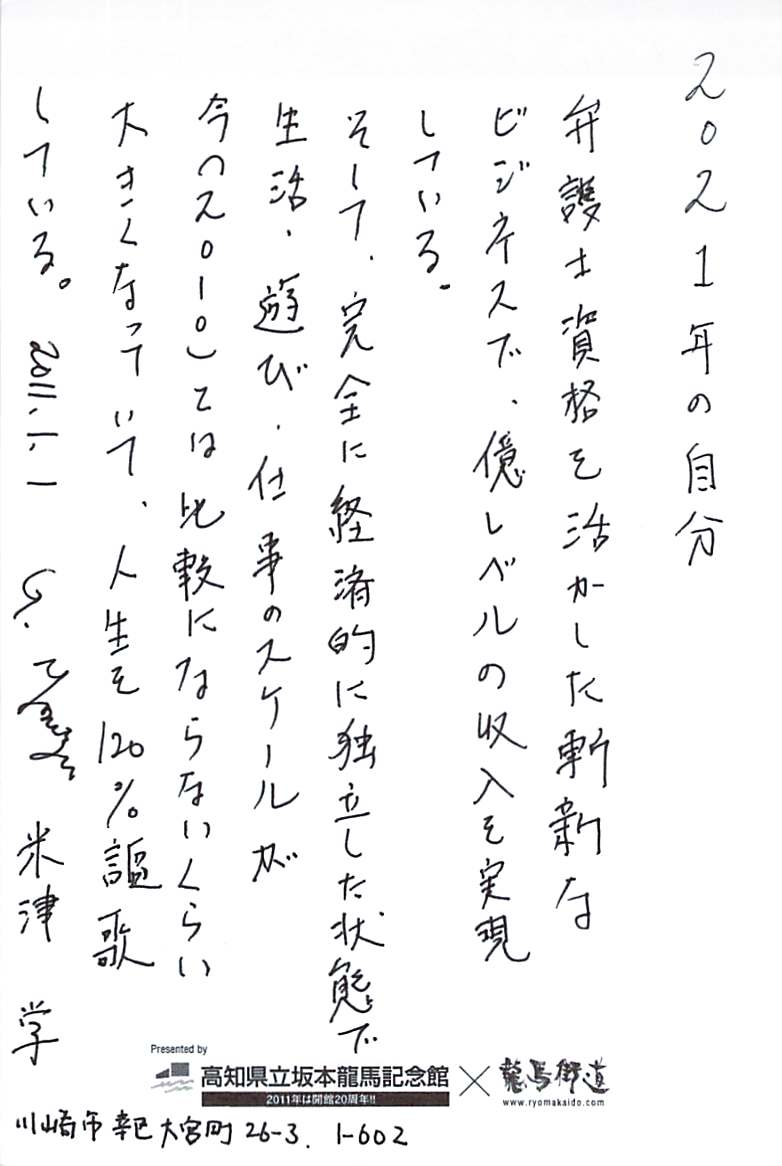 2021年の自分
弁護士資格を活かした斬新な
ビジネスで、億レベルの収入を実現
している。
そして、完全に経済的に独立した状態で
生活、遊び、仕事のスケールが
今の(2010)とは比較にならないくらい
大きくなっていて、人生を120%謳歌
している。 2011.1.1 米津 学
Presented by
高知県立坂本龍馬記念館 × 龍馬街道
2011年は開館20周年!!
www.ryomakaido.com
川崎市幸区大宮町26-3. 1-602